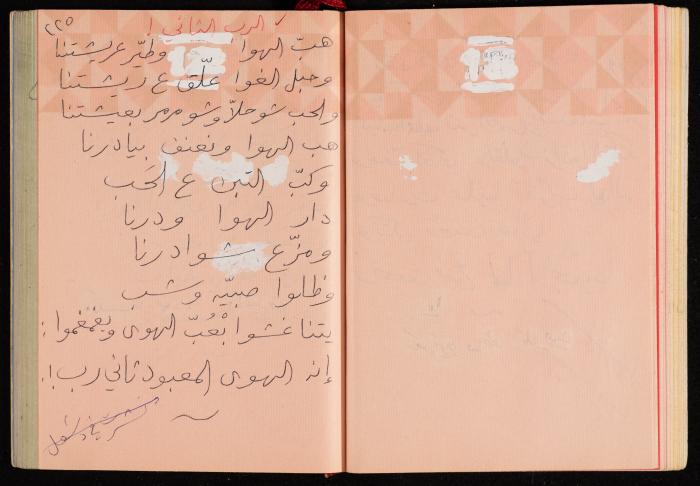 ٢٢٥
الرب الثاني !
هبّ الهوا وطيّر عريشتنا
وحبل الغوا علّق ع ريشتنا
والحب شو حلّا وشو مرمر بعيشتنا
هب الهوا ونغنف بيادرنا
وكبّ التبن ع الحَب
دار الهوا ودرنا
ومزّع شوادرنا
وظلوا صبيّه وشب
يتناغشوا بْعُبّ الهوى ويغمغموا :
إنه الهوى المعبود ثاني رب !.